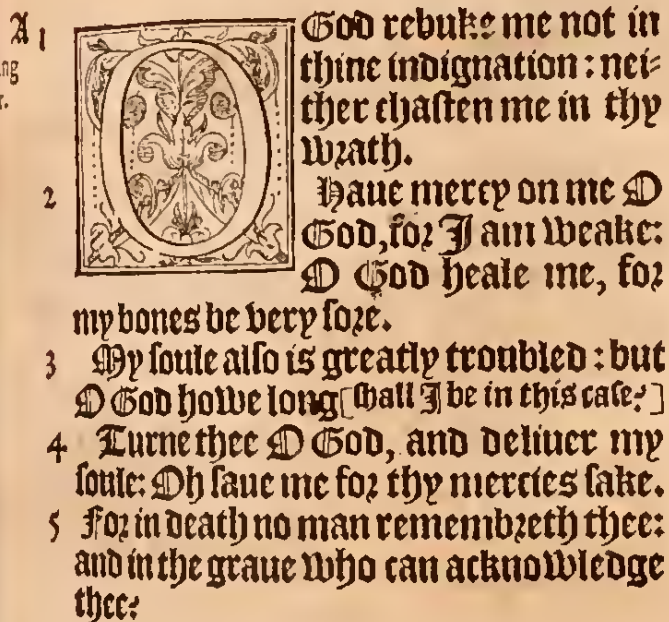 A
1 O God rebuke me not in
thine indignation : nei=
ther chaſten me in thy
wrath.
2 Haue mercy on me O
God, for I am weake:
O God heale me, for
my bones be very ſore.
3 My ſoule alſo is greatly troubled : but
O God howe long [ſhall I be in this caſe?]
4 Turne thee O God, and deliuer my
ſoule: Oh ſaue me for thy mercies ſake.
5 For in death no man remembreth thee:
and in the graue who can acknowledge
thee?